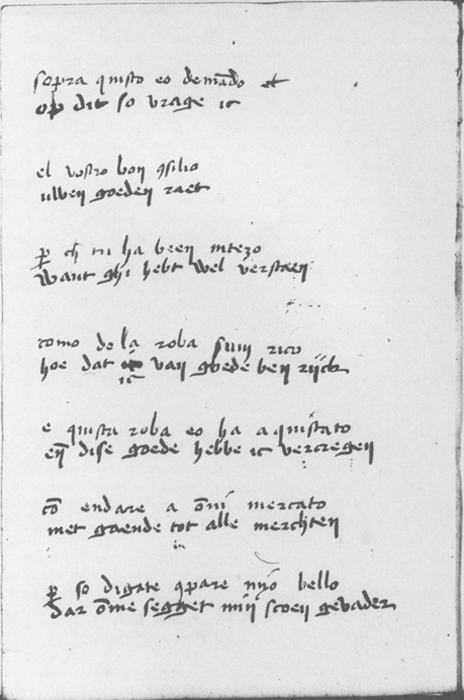 sopra quisto eo demãdo el
op dit so vrage ic
el vostro bon 9silio
uwen goeden raet
ꝑ ch̃ tu ha been intezo
want ghi hebt wel verstaen
como de la roba sun rico
hoe dat ic van goede ben rijck
ic
e quista roba eo ha aquistato
eñ dise goede hebbe ic vercregen
cõ endare a õni mercato
met gaende tot alle merchten
in
ꝑ so digate 9pare myo bello
Dar õme segget mijn scoen gevader